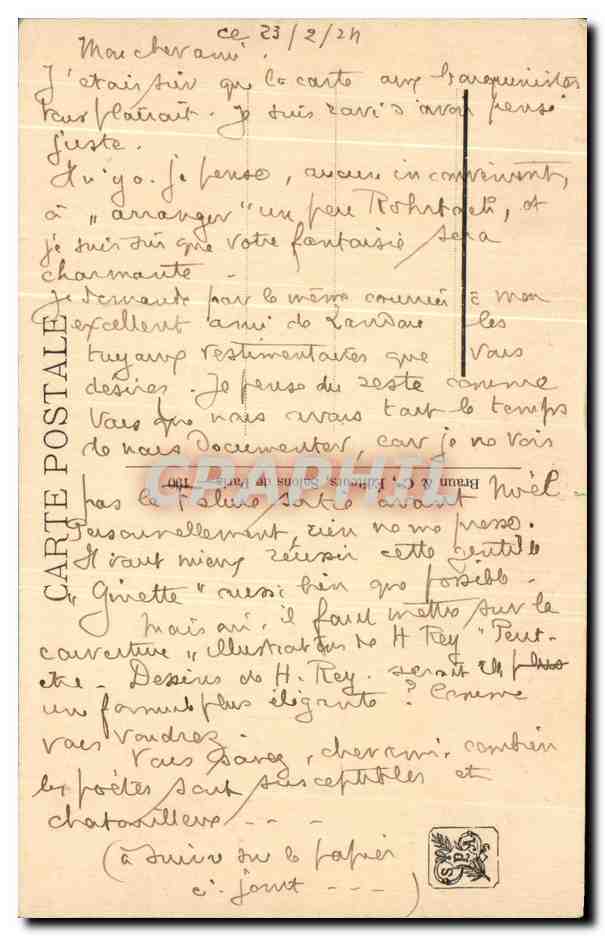 ce 23/2/24
Mon cher ami.
J'étais sûr que la carte aux bouquinistes
vous plairait. Je suis ravi d'avoir pensé
juste.
Il n'y a, je pense, aucun inconvénient,
à "arranger" un peu Rohrbach, et
je suis sûr que votre fantaisie sera
charmante.
Je demande par le même courrier à mon
excellent ami de Landau les
tuyaux vestimentaires que vous
désirez. Je pense du reste comme
vous que nous avons tout le temps
de nous documenter, car je ne vois
pas la sortie avant Noël.
Personnellement, rien ne me presse.
Il vaut mieux réussir cette gentille
"Ginette" aussi bien que possible.
Mais oui, il faut mettre sur la
couverture "illustrations de H Rey" Peut-
être. Dessins de H. Rey. serait il
une formule plus élégante? Comme
vous voudrez.
Vous savez, cher ami, combien
les poètes sont susceptibles et
chatouilleux - - -
(à suivre sur le papier
ci-joint - - - )
CARTE POSTALE
Braun & Cie, Éditeurs, Salons de Paris 190
CPAPHIL
S.P.A